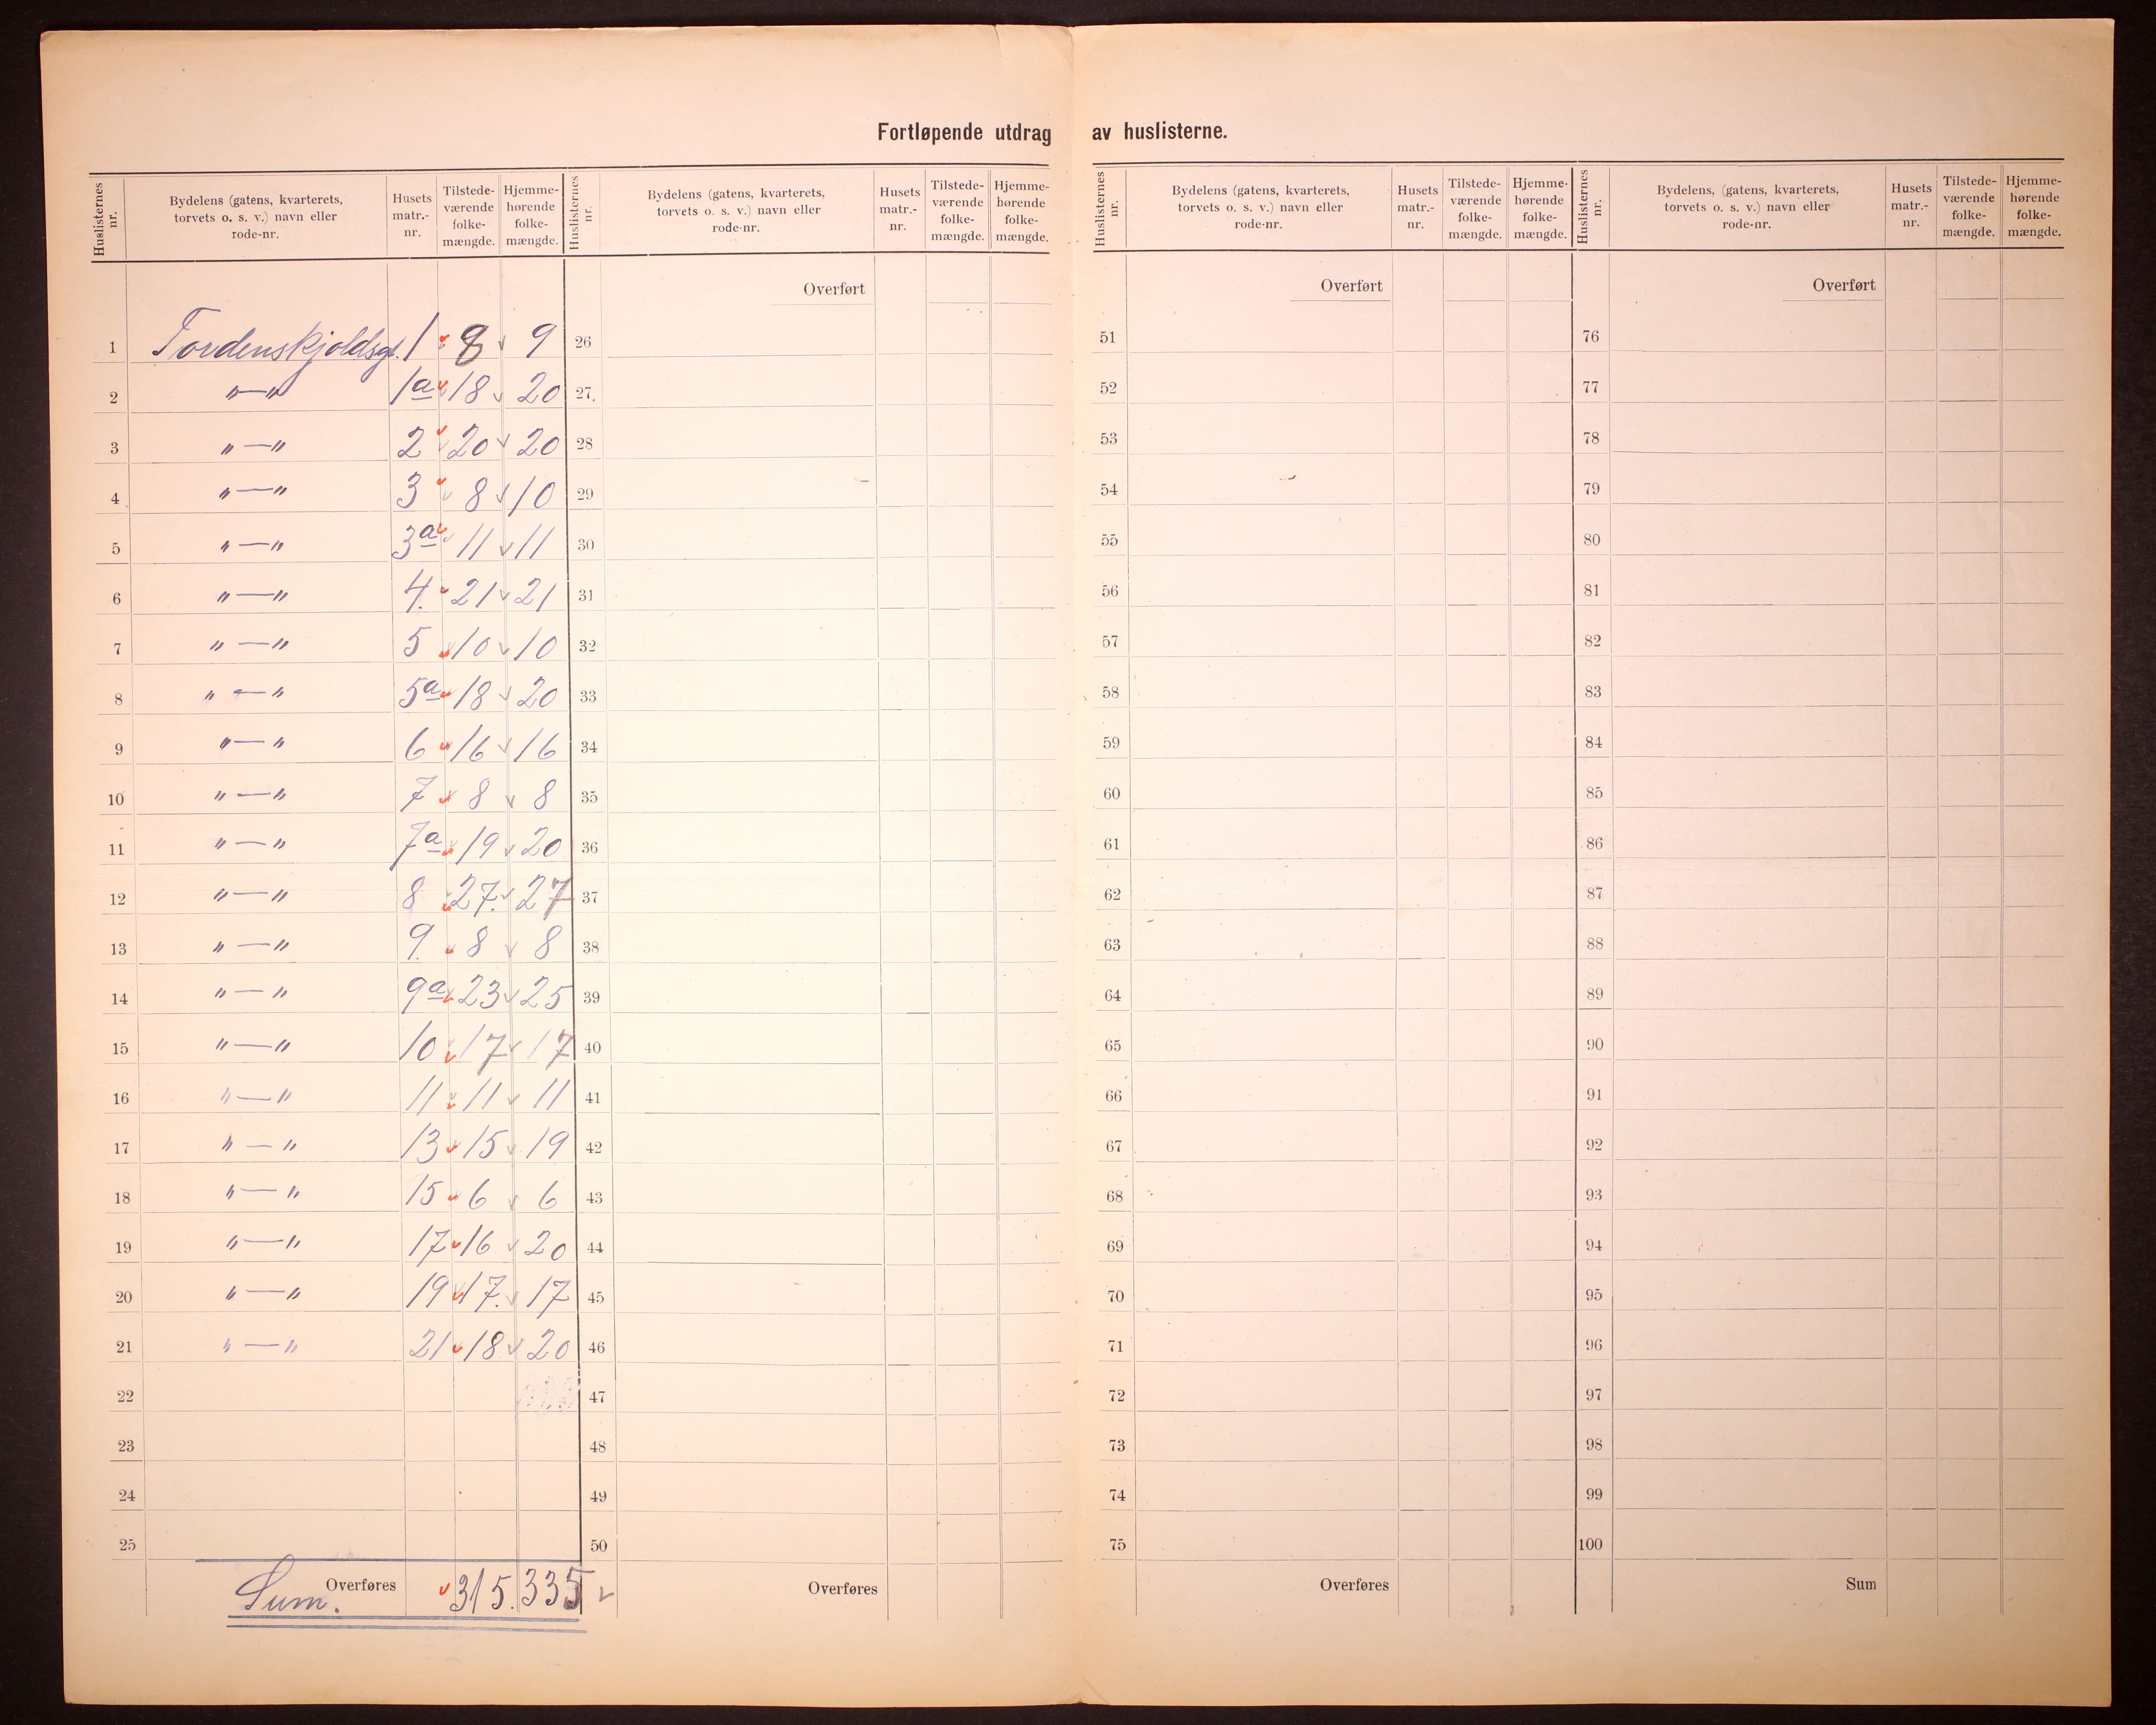 Fortløpende utdrag av huslisterne.
Huslisternes nr. Bydelens (gatens, kvarterets, torvets o. s. v.) navn eller rode-nr. Husets matr.-nr. Tilstede-værende folke-mængde. Hjemme-hørende folke-mængde.
1 Tordenskjoldsgt. 1 8 9
2 "—" 1a 18 20
3 "—" 2 20 20
4 "—" 3 8 10
5 "—" 3a 11 11
6 "—" 4. 21 21
7 "—" 5 10 10
8 "—" 5a 18 20
9 "—" 6 16 16
10 "—" 7 8 8
11 "—" 7a 19 20
12 "—" 8 27. 27
13 "—" 9. 8 8
14 "—" 9a 23 25
15 "—" 10 17 17
16 "—" 11 11 11
17 "—" 13 15 19
18 "—" 15 6 6
19 "—" 17 16 20
20 "—" 19 17. 17
21 "—" 21 18 20
22
23
24
25
Overføres
Sum. 315. 335
Huslisternes nr. Bydelens (gatens, kvarterets, torvets o. s. v.) navn eller rode-nr. Husets matr.-nr. Tilstede-værende folke-mængde. Hjemme-hørende folke-mængde.
Overført
26
27.
28
29
30
31
32
33
34
35
36
37
38
39
40
41
42
43
44
45
46
47
48
49
50
Overføres
Huslisternes nr. Bydelens (gatens, kvarterets, torvets o. s. v.) navn eller rode-nr. Husets matr.-nr. Tilstede-værende folke-mængde. Hjemme-hørende folke-mængde.
Overført
51
52
53
54
55
56
57
58
59
60
61
62
63
64
65
66
67
68
69
70
71
72
73
74
75
Overføres
Huslisternes nr. Bydelens, (gatens, kvarterets, torvets o. s. v.) navn eller rode-nr. Husets matr.-nr. Tilstede-værende folke-mængde. Hjemme-hørende folke-mængde.
Overført
76
77
78
79
80
81
82
83
84
85
86
87
88
89
90
91
92
93
94
95
96
97
98
99
100
Sum